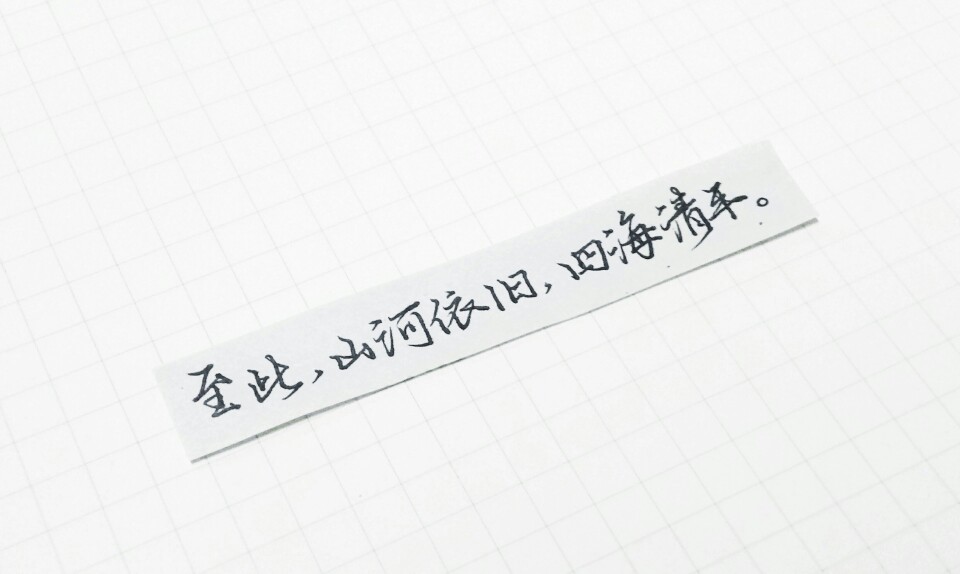 至此,山河依旧,四海清平。